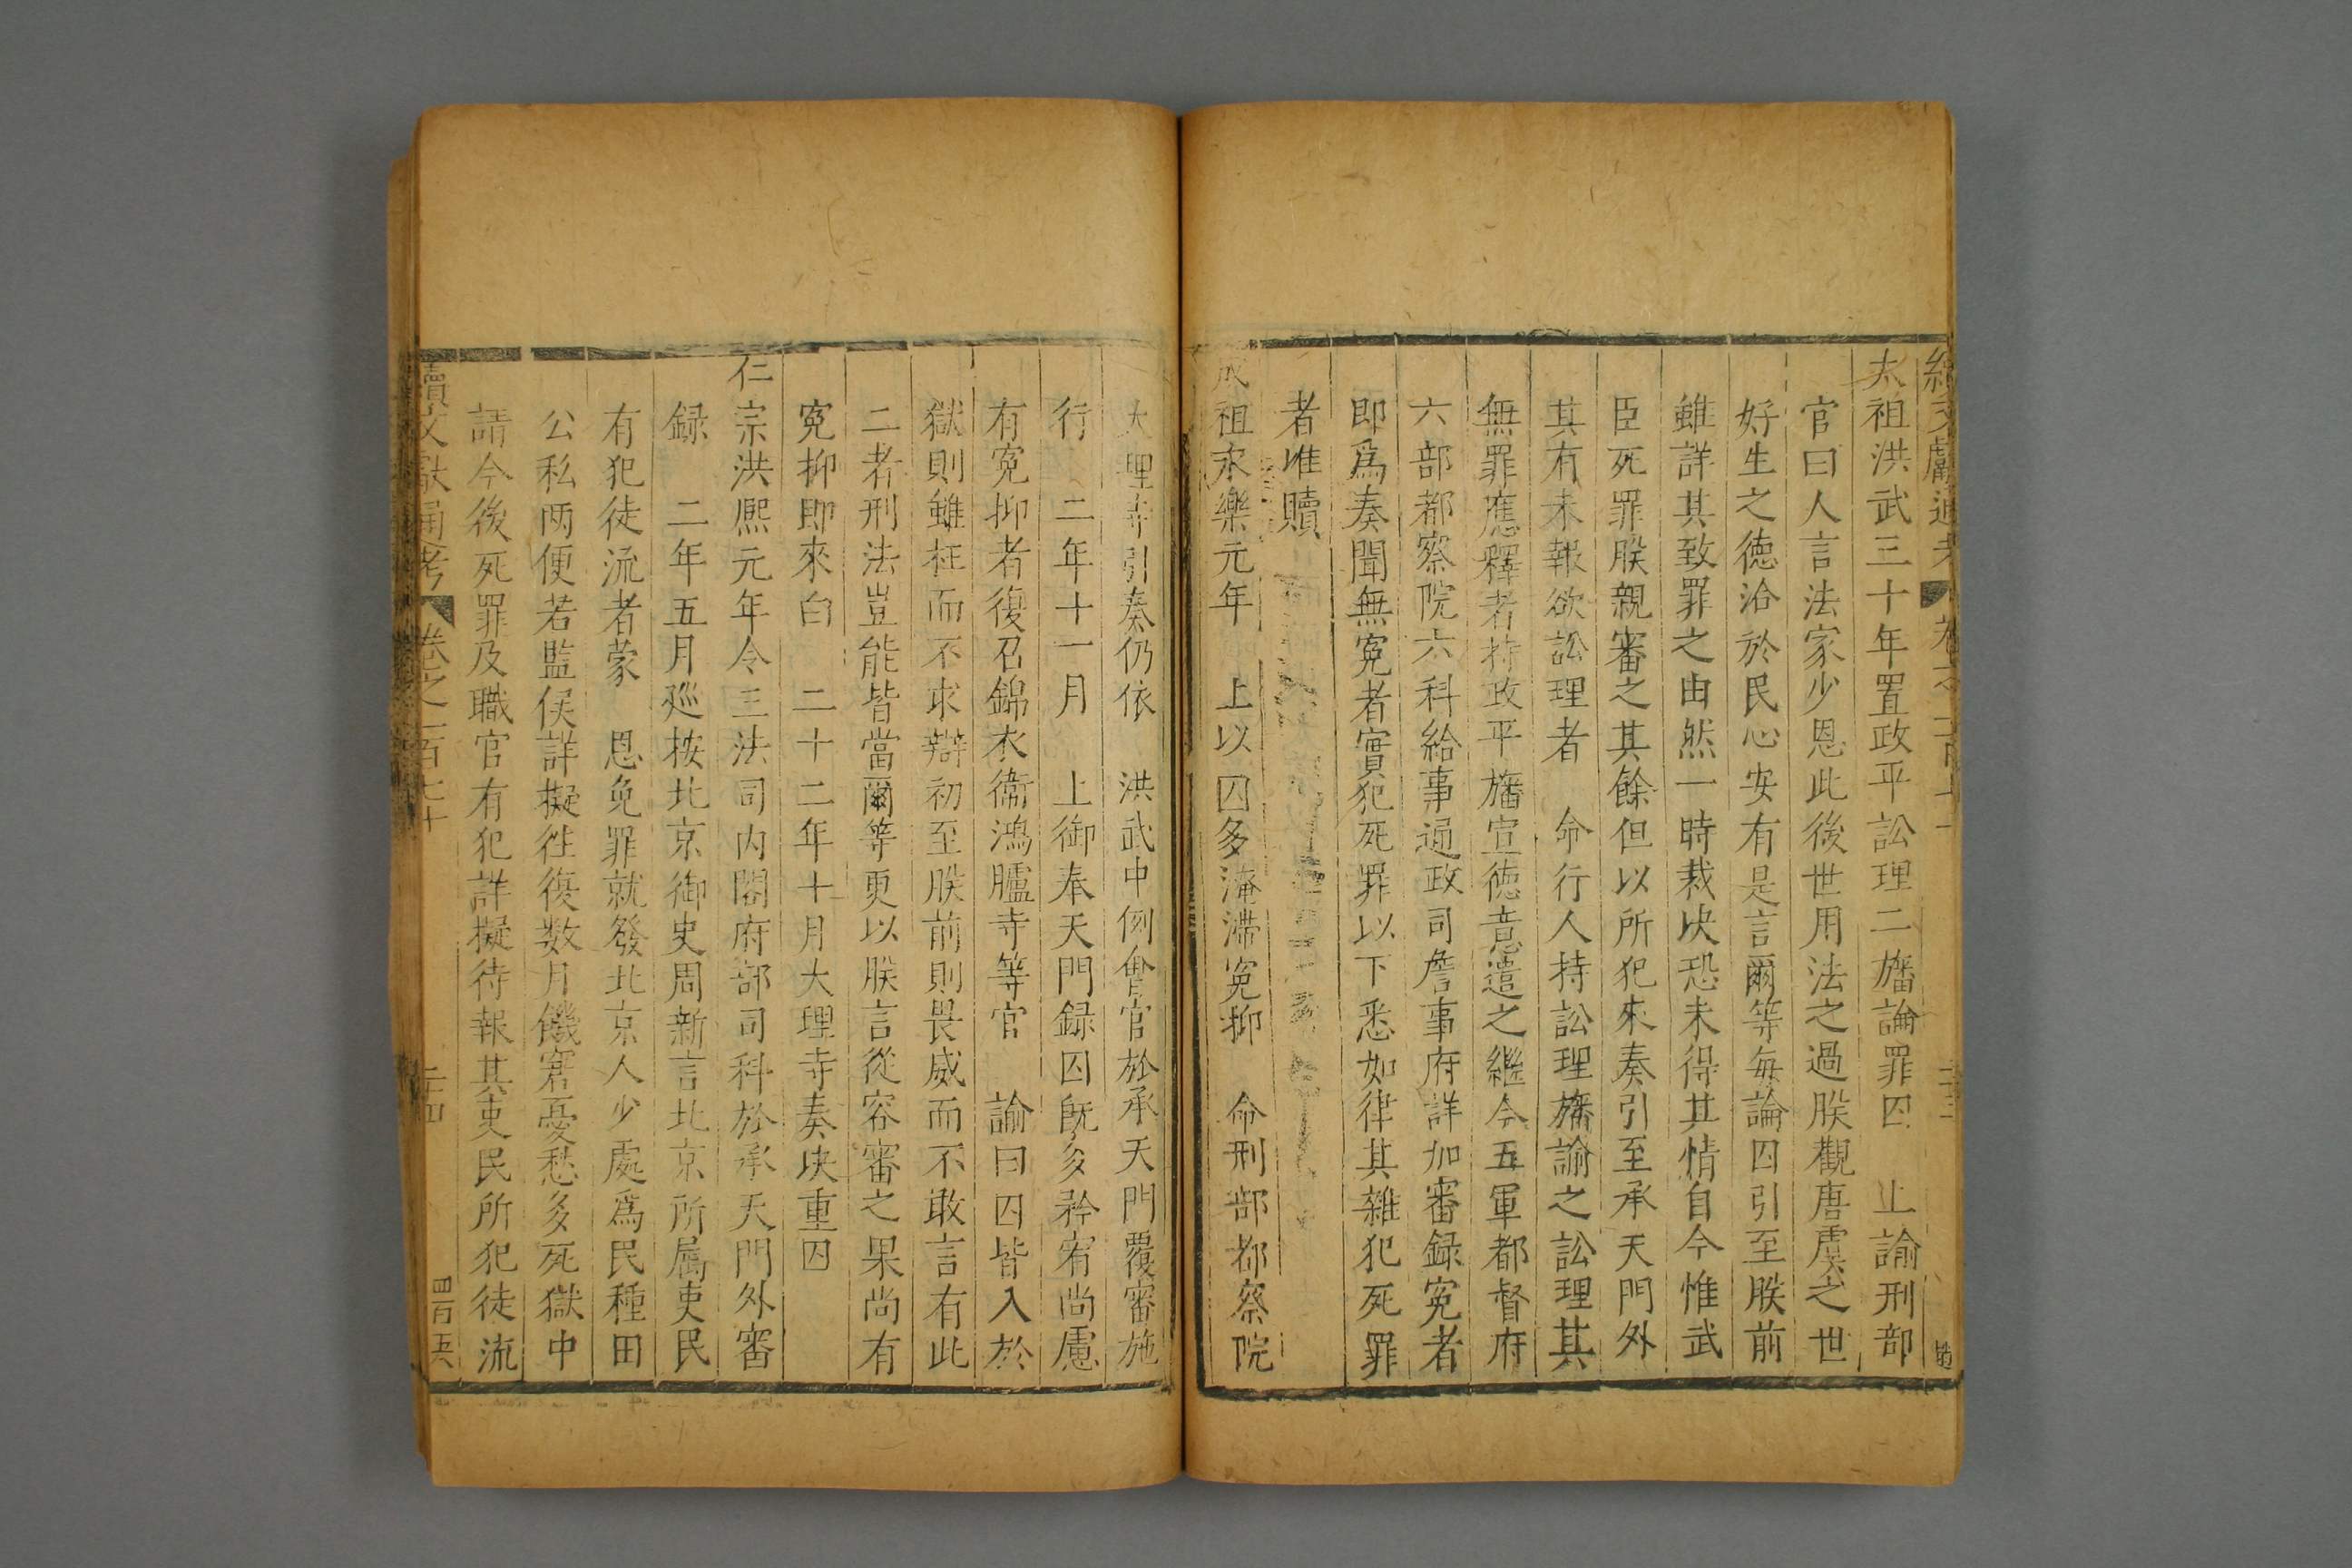 續文獻通考 卷之一百七十 二十三
太祖洪武三十年置政平訟理二旛論罪囚 上諭刑部
官曰人言法家少恩此後世用法之過朕觀唐虞之世
好生之德洽於民心安有是言爾等每論囚引至朕前
雖詳其致罪之由然一時裁决恐未得其情自今惟武
臣死罪朕親審之其餘但以所犯來奏引至承天門外
其有未報欲訟理者 命行人持訟理旛諭之訟理其
無罪應釋者持政平旛宣德意遣之繼令五軍都督府
六部都察院六科給事通政司詹事府詳加審録冤者
即爲奏聞無冤者實犯死罪以下悉如律其雜犯死罪
者准贖
成祖永樂元年 上以囚多淹滯冤抑 命刑部都察院
大理寺引奏仍依 洪武中例會官於承天門覆審施
行 二年十一月 上御奉天門録囚旣多矜宥尚慮
有冤抑者復召錦衣衞鴻臚寺等官 諭曰囚皆入於
獄則雖枉而不求辯初至朕前則畏威而不敢言有此
二者刑法豈能皆當爾等更以朕言從容審之果尚有
冤抑即來白 二十二年十月大理寺奏决重囚
仁宗洪熙元年令三法司内閣府部司科於承天門外審
録 二年五月廵按北京御史周新言北京所属吏民
有犯徒流者蒙 恩免罪就發北京人少處爲民種田
公私両便若監候詳擬徃復数月饑窘憂愁多死獄中
請今後死罪及職官有犯詳擬待報其吏民所犯徒流
續文獻通考 卷之一百七十 二十四